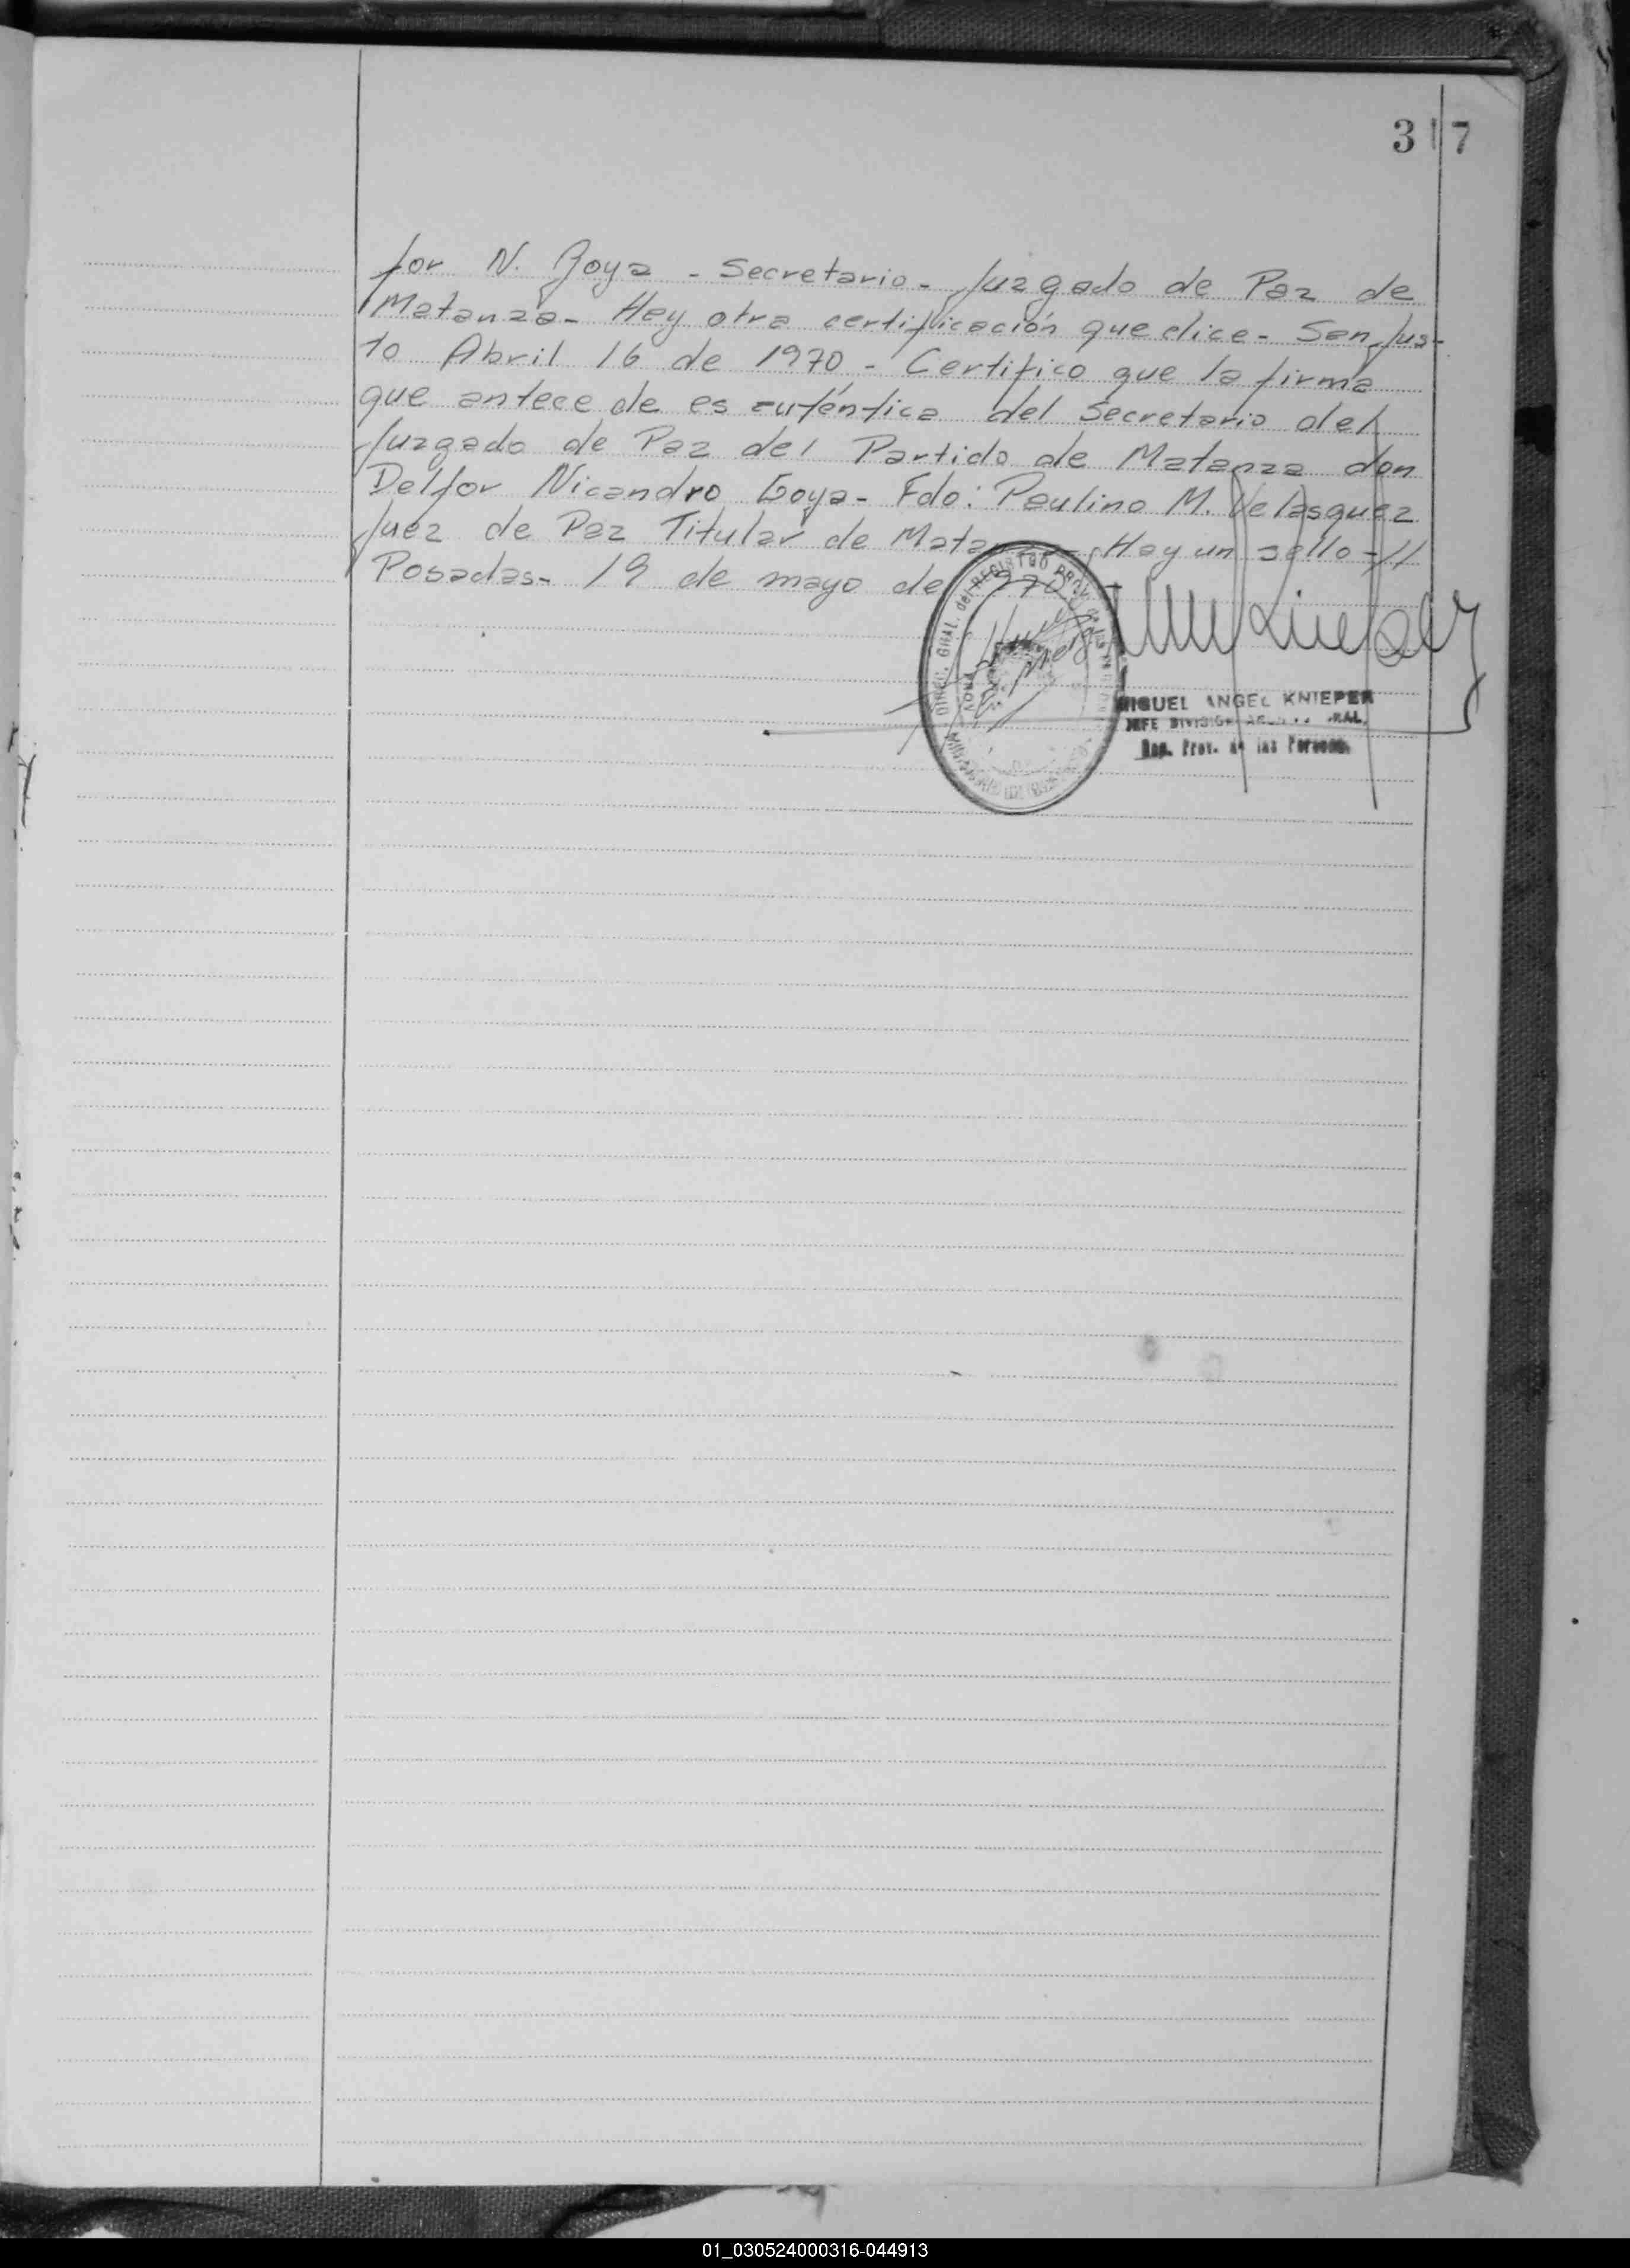 317
for N. Goya - Secretario - Juzgado de Paz de
Matanza - Hay otra certificación que dice - San Jus-
to Abril 16 de 1970 - Certifico que la firma
que antecede es auténtica del Secretario del
Juzgado de Paz del Partido de Matanza don
Delfor Nicandro Goya - Fdo: Paulino M. Velasquez
Juez de Paz Titular de Matanza - Hay un sello -//
Posadas - 19 de mayo de 1970
DIREC. GRAL. del REGISTRO PROV. de las
MIGUEL ANGEL KNIEPER
JEFE DIVISION GRAL.
Reg. Prov. de las Personas
01_030524000316-044913